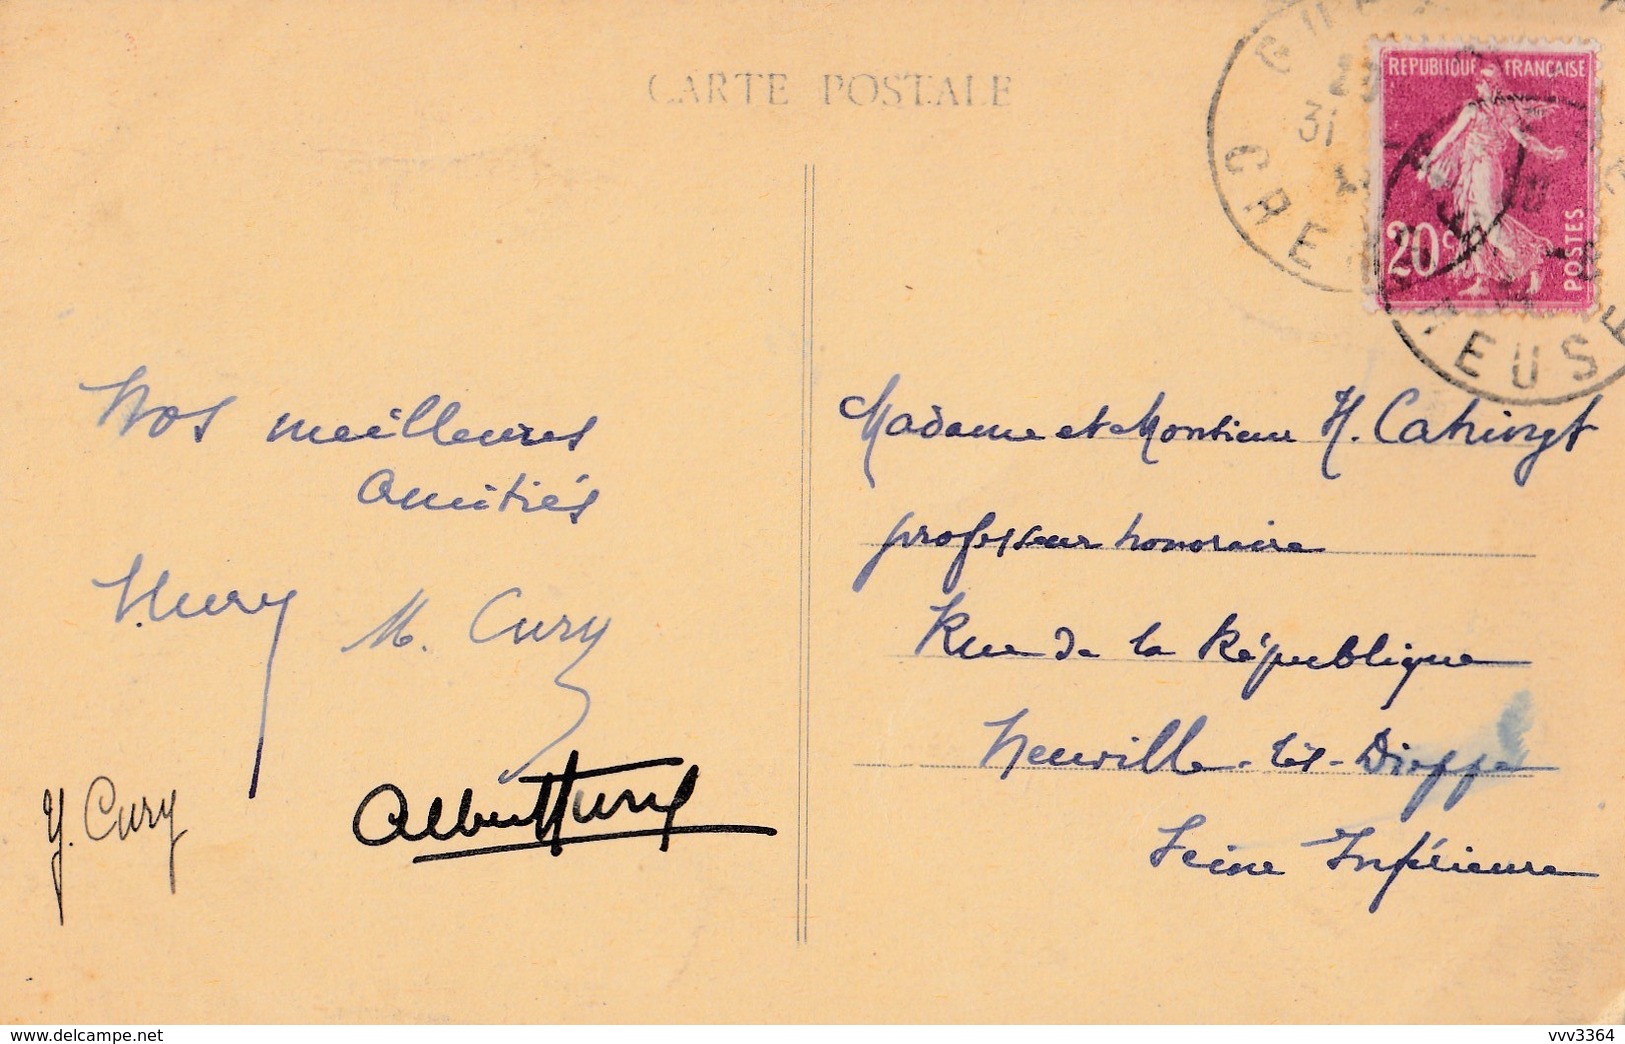 CARTE POSTALE
REPUBLIQUE FRANÇAISE
20c
POSTES
31
CRE
REUSE
Nos meilleures
amitiés
M. Cury
Y. Cury
Madame et Monsieur H.
professeur honoraire
Rue de la République
Neuville-lès-Dieppe
Seine Inférieure
www.delcampe.net
vvv3364